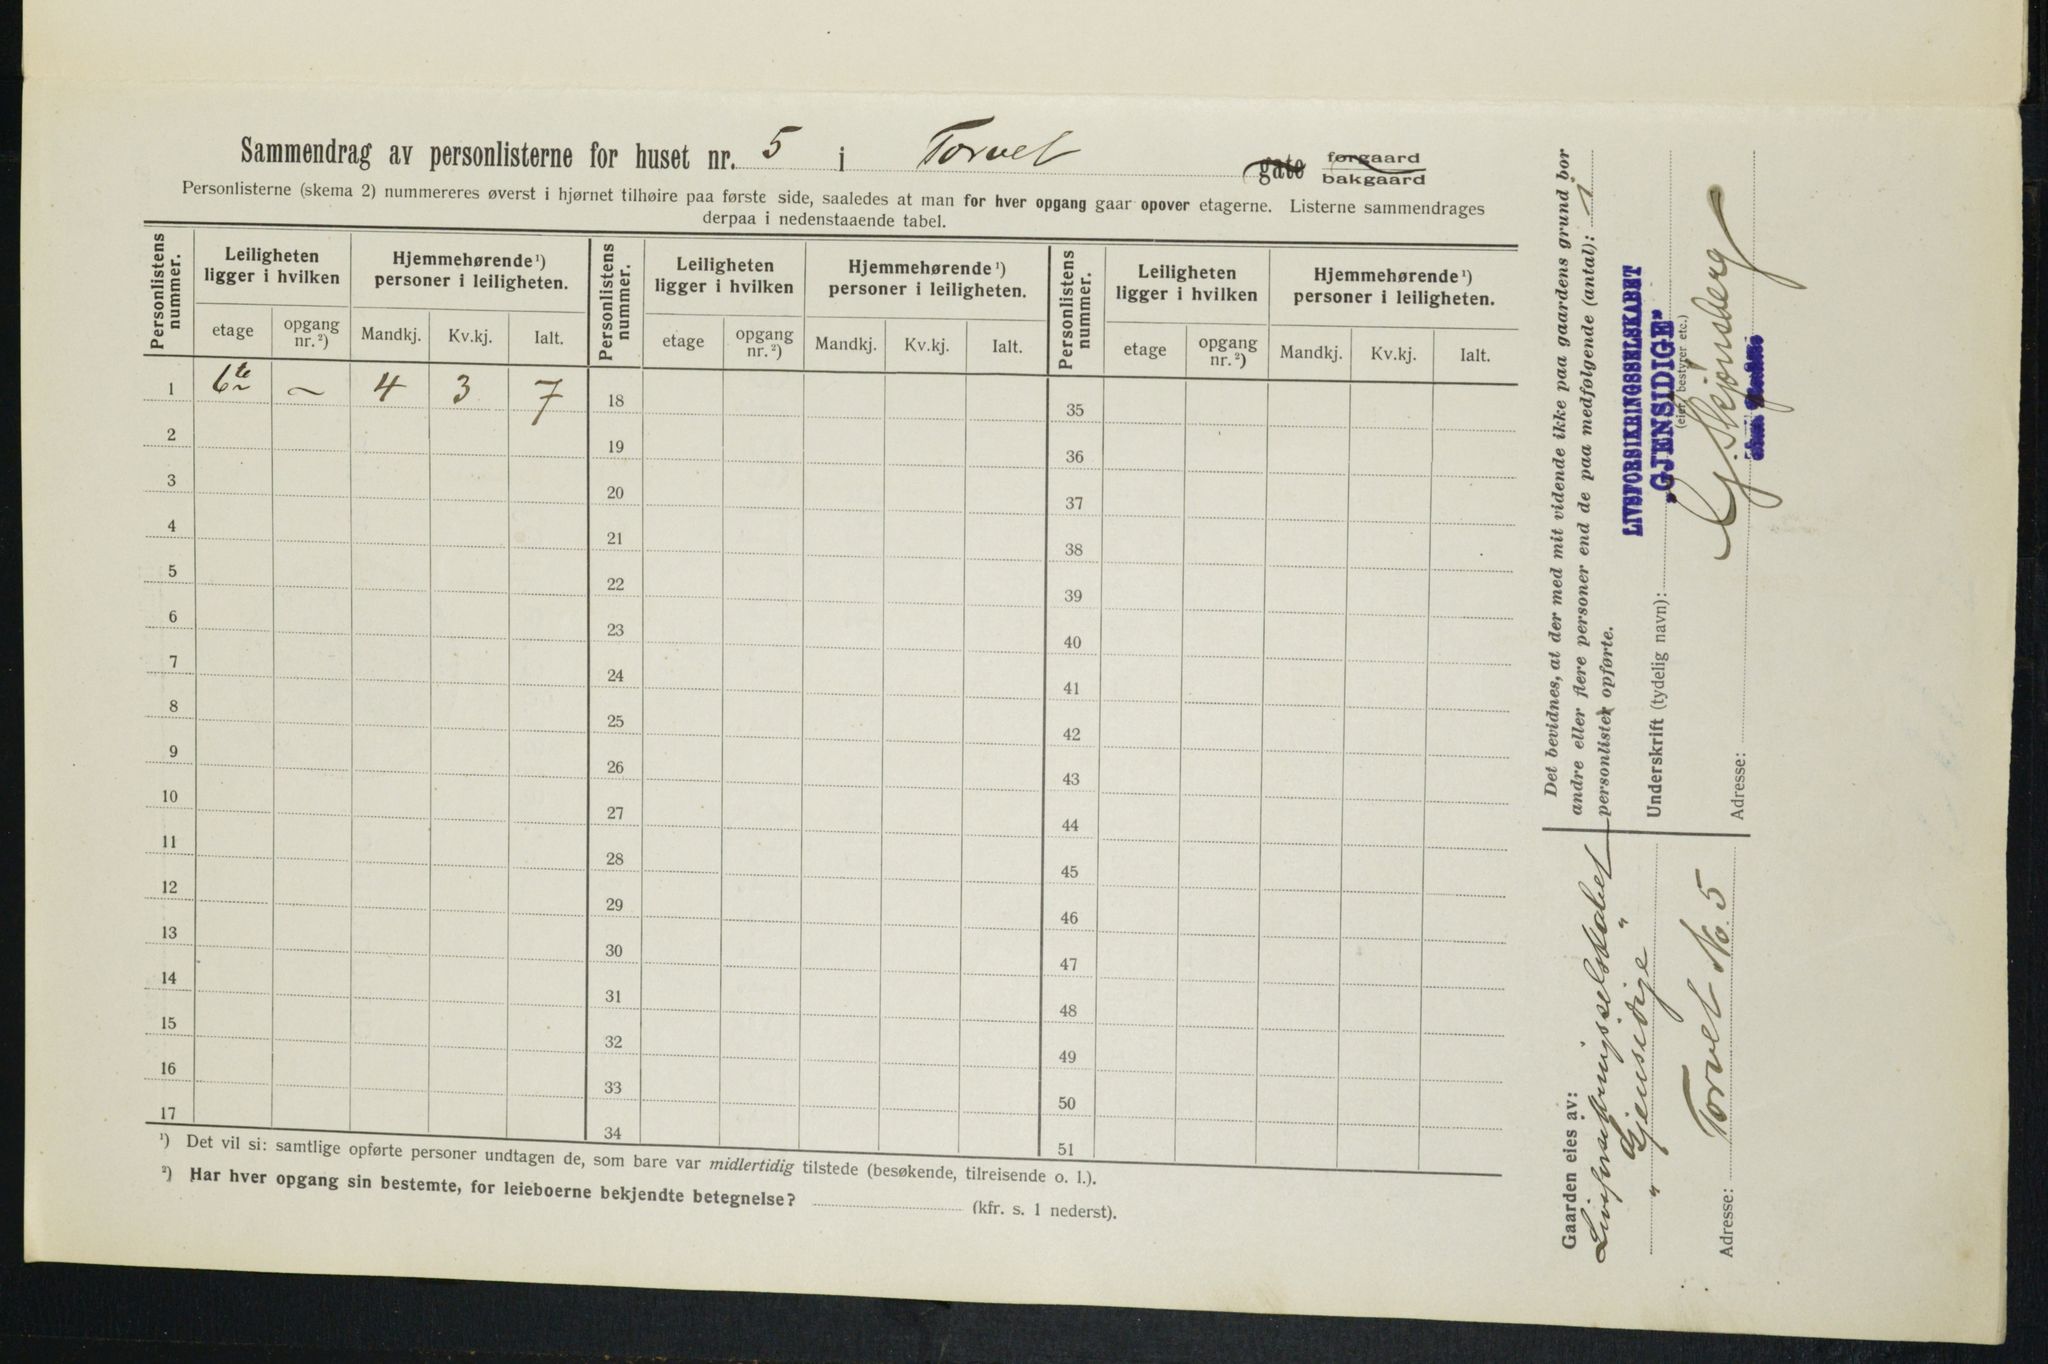 Sammendrag av personlisterne for huset nr. 5 i Torvet gate forgaard bakgaard
Personlisterne (skema 2) nummereres øverst i hjørnet tilhøire paa første side, saaledes at man for hver opgang gaar opover etagerne. Listerne sammendrages
derpaa i nedenstaaende tabel.
Personlistens nummer. Leiligheten ligger i hvilken Hjemmehørende ¹) personer i leiligheten. Personlistens nummer. Leiligheten ligger i hvilken Hjemmehørende ¹) personer i leiligheten. Personlistens nummer. Leiligheten ligger i hvilken Hjemmehørende ¹) personer i leiligheten.
etage opgang nr. ²) Mandkj. Kv.kj. Ialt. etage opgang nr. ²) Mandkj. Kv.kj. Ialt. etage opgang nr. ²) Mandkj. Kv.kj. Ialt.
1 6te ~ 4 3 7 18 35
2 19 36
3 20 37
4 21 38
5 22 39
6 23 40
7 24 41
8 25 42
9 26 43
10 27 44
11 28 45
12 29 46
13 30 47
14 31 48
15 32 49
16 33 50
17 34 51
¹) Det vil si: samtlige opførte personer undtagen de, som bare var midlertidig tilstede (besøkende, tilreisende o. l.).
²) Har hver opgang sin bestemte, for leieboerne bekjendte betegnelse? (kfr. s. 1 nederst).
Det bevidnes, at der med mit vidende ikke paa gaardens grund bor
andre eller flere personer end de paa medfølgende (antal): 1
personlister opførte.
LIVSFORSIKRINGSSELSKABET
„GJENSIDIGE"
Underskrift (tydelig navn):
(eier, bestyrer etc.)
G. Skjønsberg
Adresse:
Gaarden eies av:
Livsforsikringsselskabet
„Gjensidige"
Adresse: Torvet No. 5